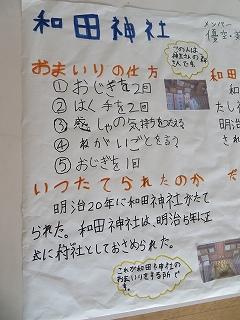 和田神社
メンバー
優空・
この人は
神主さんの
さんです。
おまいりの仕方
①おじぎを2回
②はく手を2回
③感しゃの気持ちを伝える
④ねがいごとを言う
⑤おじぎを1回
いつたてられたのか
明治20年に和田神社がたて
られた。和田神社は、明治5年に正
式に村社としておさめられた。
これが和田神社の
おまいりをする所で
す。
和田
たし